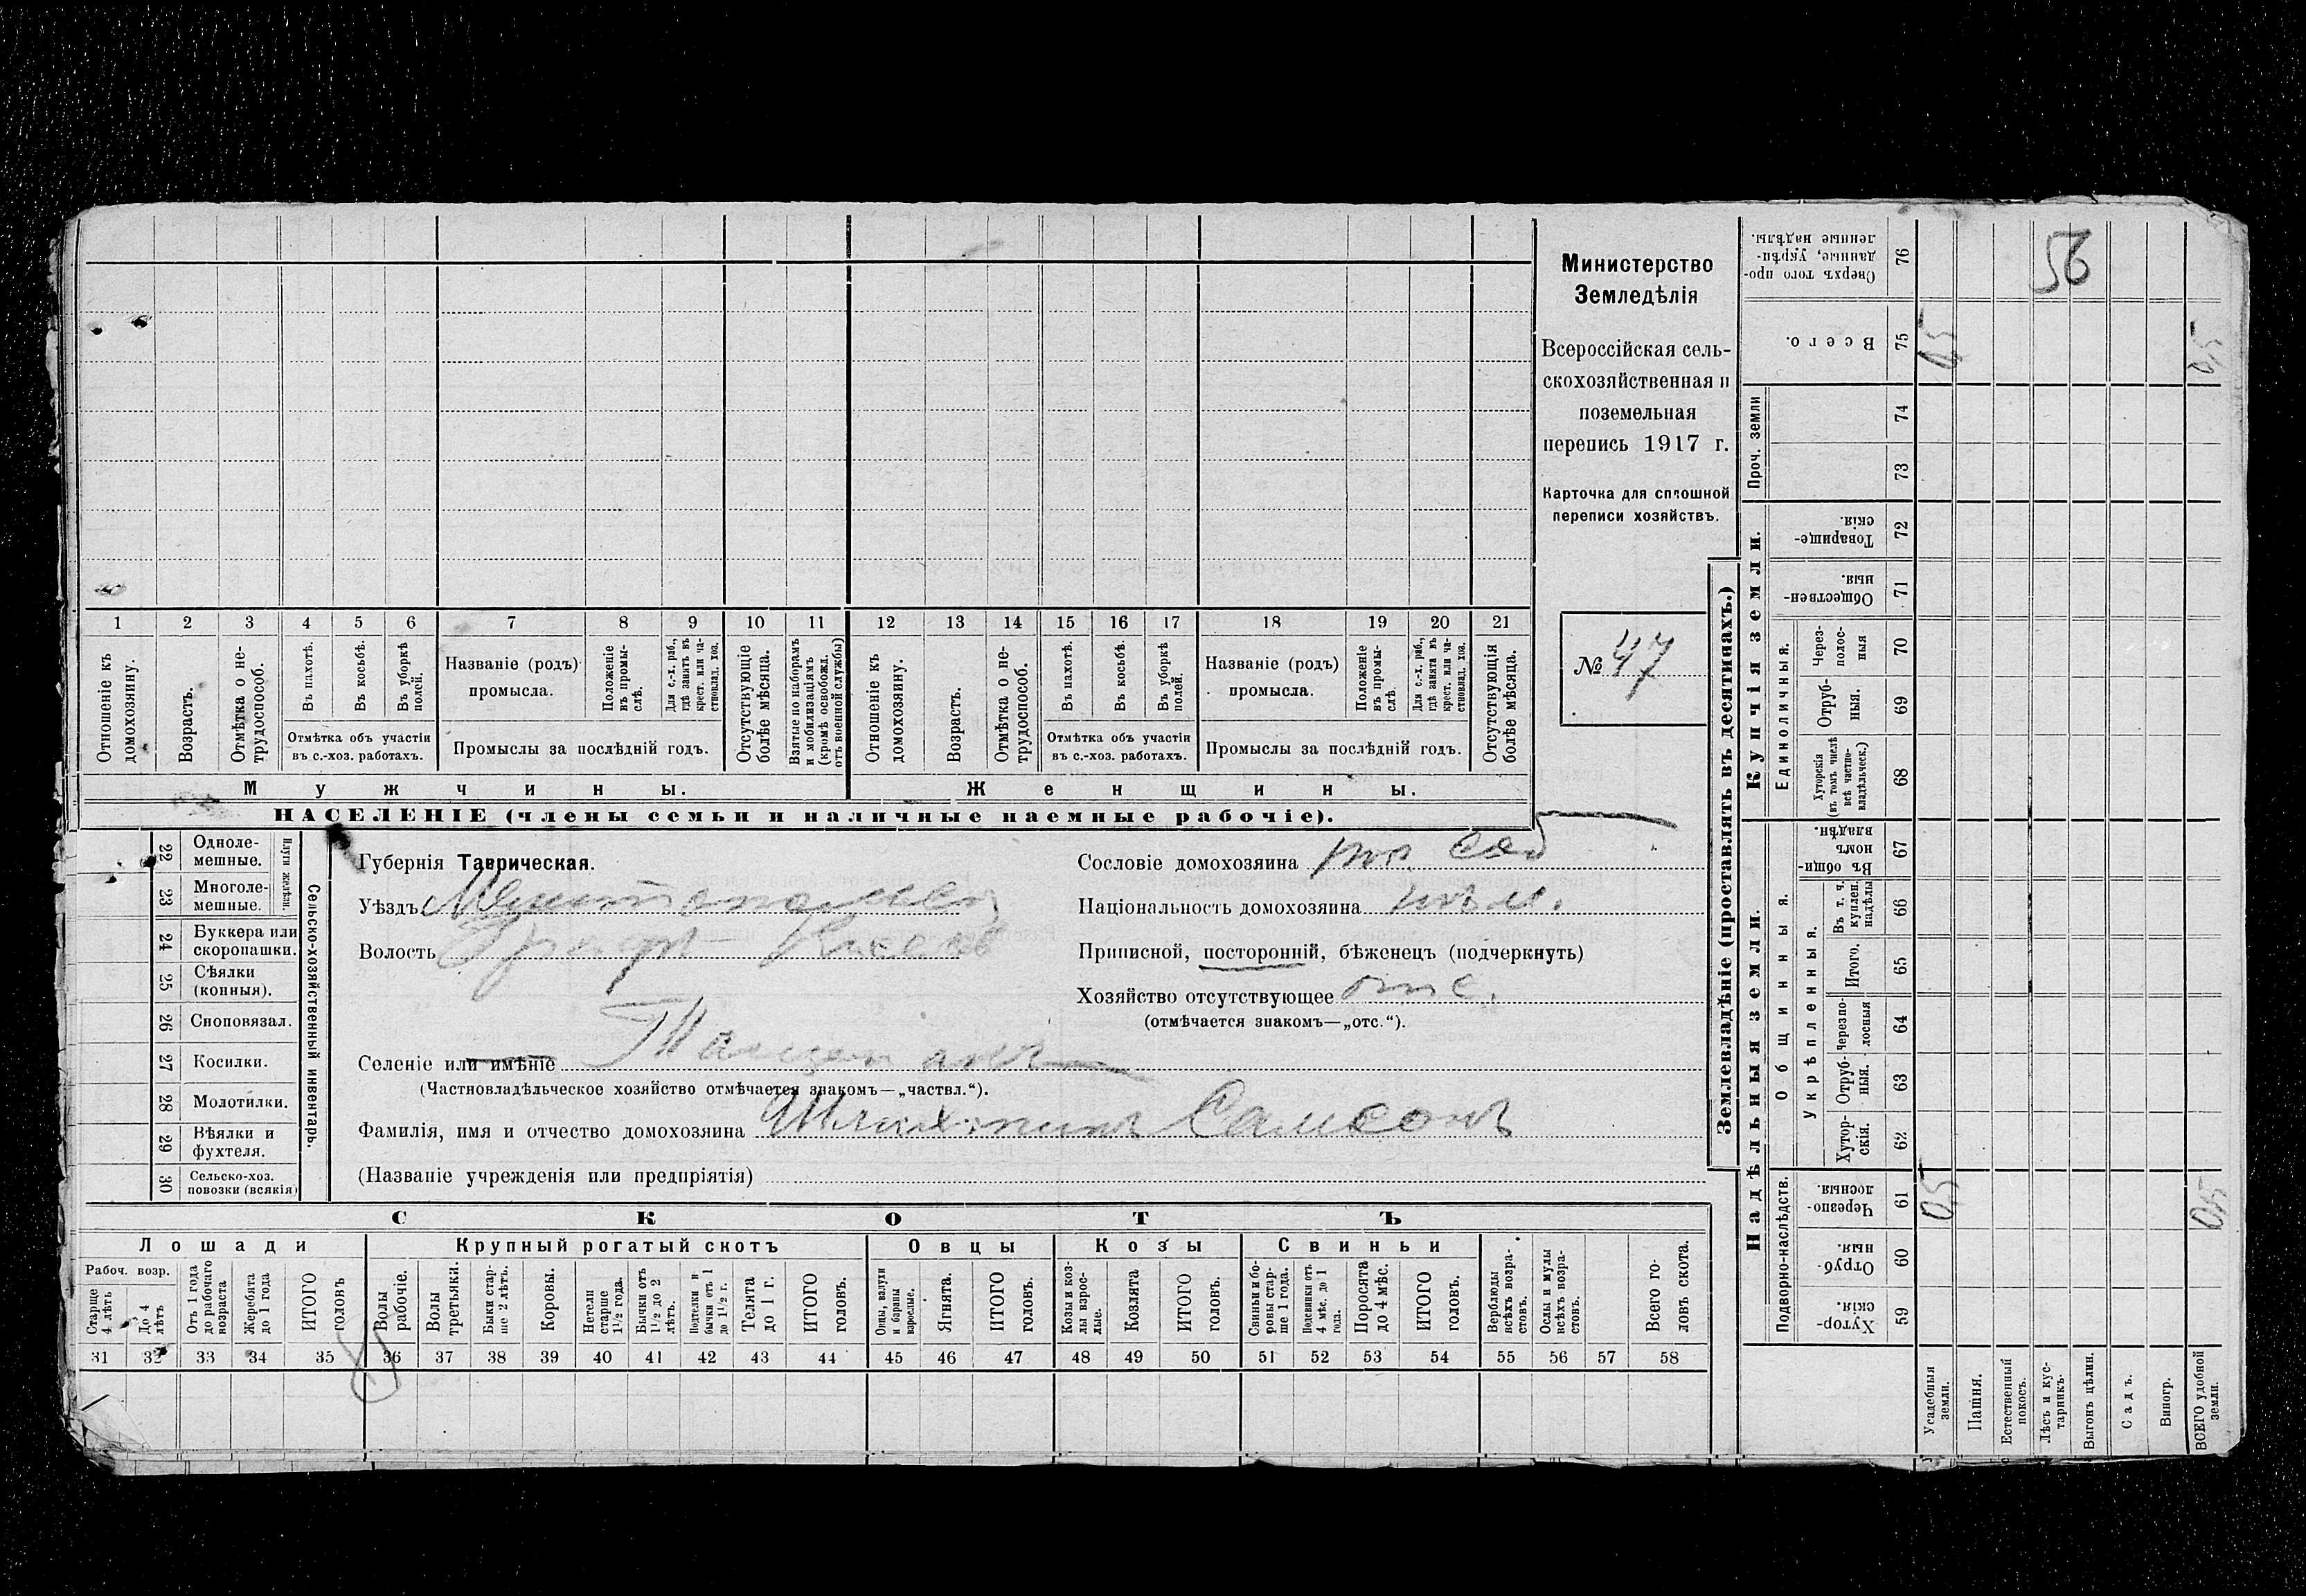 Министерство
Земледѣлія
Всероссійская сель-
скохозяйственная и
поземельная
перепись 1917 г.
Карточка для сплошной
переписи хозяйствъ.
№ 47
1 2 3 4 5 6 7 8 9 10 11 12 13 14 15 16 17 18 19 20 21
Отношеніе къ домохозяину.
Возрастъ.
Отмѣтка о не-трудоспособ.
Въ пахотѣ.
Въ косьбѣ.
Въ уборкѣ полей.
Отмѣтка объ участіи
въ с.-хоз. работахъ.
Названіе (родъ)
промысла.
Положеніе въ промы-слѣ.
Для с.-х. раб., гдѣ занятъ въ крест. или ча-стновлад. хоз.
Промыслы за послѣдній годъ.
Отсутствующіе болѣе мѣсяца.
Взятые по наборамъ и мобилизаціямъ (кромѣ освобожд. отъ военной службы)
Отношеніе къ домохозяину.
Возрастъ.
Отмѣтка о не-трудоспособ.
Въ пахотѣ.
Въ косьбѣ.
Въ уборкѣ полей.
Отмѣтка объ участіи
въ с.-хоз. работахъ.
Названіе (родъ)
промысла.
Положеніе въ промы-слѣ.
Для с.-х. раб., гдѣ занята въ крест. или ча-стновлад. хоз.
Промыслы за послѣдній годъ.
Отсутствующія болѣе мѣсяца.
Мужчины.
Женщины.
НАСЕЛЕНІЕ (члены семьи и наличные наемные рабочіе).
22 Одноле-мешные.
23 Многоле-мешные.
Плуги желѣзн.
24 Буккера или скоропашки.
25 Сѣялки (конныя).
26 Сноповязал.
27 Косилки.
28 Молотилки.
29 Вѣялки и фухтеля.
30 Сельско-хоз. повозки (всякія)
Сельско-хозяйственный инвентарь.
Губернія Таврическая.
Уѣздъ
Волость
Селеніе или имѣніе
(Частновладѣльческое хозяйство отмѣчается знакомъ—„частвл.“).
Фамилія, имя и отчество домохозяина Самсонъ
(Названіе учрежденія или предпріятія)
Сословіе домохозяина пос соб
Національность домохозяина нѣм.
Приписной, посторонній, бѣженецъ (подчеркнуть)
Хозяйство отсутствующее отс.
(отмѣчается знакомъ—„отс.“).
СКОТЪ
Лошади
Рабоч. возр.
Старше 4 лѣтъ
До 4 лѣтъ
Отъ 1 года до рабочаго возраста
Жеребята до 1 года
ИТОГО головъ
Крупный рогатый скотъ
Волы рабочіе.
Волы третьяки.
Быки стар-ше 2 лѣтъ.
Коровы.
Нетели старше 1½ года.
Бычки отъ 1½ до 2 лѣтъ.
Подтелки и бычки отъ 1 до 1½ г.
Телята до 1 г.
ИТОГО головъ.
Овцы
Овцы, валухи и бараны взрослые.
Ягнята.
ИТОГО головъ.
Козы
Козы и коз-лы взрос-лые.
Козлята
ИТОГО головъ.
Свиньи
Свиньи и бо-ровы стар-ше 1 года.
Подсвинки отъ 4 мѣс. до 1 года.
Поросята до 4 мѣс.
ИТОГО головъ.
Верблюды всѣхъ возра-стовъ.
Ослы и мулы всѣхъ возра-стовъ.
Всего го-ловъ скота.
31 32 33 34 35 36 37 38 39 40 41 42 43 44 45 46 47 48 49 50 51 52 53 54 55 56 57 58
Землевладѣніе (проставлять въ десятинахъ.)
Надѣльныя земли.
Купчія земли.
Проч. земли
Подворно-наслѣдств.
Общинныя.
Укрѣпленныя.
Единоличныя.
Сверхъ того про-данные, укрѣп-ленные надѣлы. 76
Всего. 75 0,5 0,5
74
73
Товарище-скія. 72
Обществен-ныя. 71
Через-полос-ныя 70
Отруб-ныя. 69
Хуторскія (въ томъ числѣ всѣ частно-владѣльческ.) 68
Въ общи-номъ владѣн. 67
Въ т. ч. куплен. надѣлы 66
Итого. 65
Черезпо-лосныя 64
Отруб-ныя. 63
Хутор-скія. 62
Черезпо-лосныя. 61 0,5 0,5
Отруб-ныя. 60
Хутор-скія. 59
Усадебныя земли.
Пашня.
Естественный покосъ.
Лѣсъ и кус-тарникъ.
Выгонъ цѣлин.
Садъ.
Виногр.
ВСЕГО удобной земли.
56